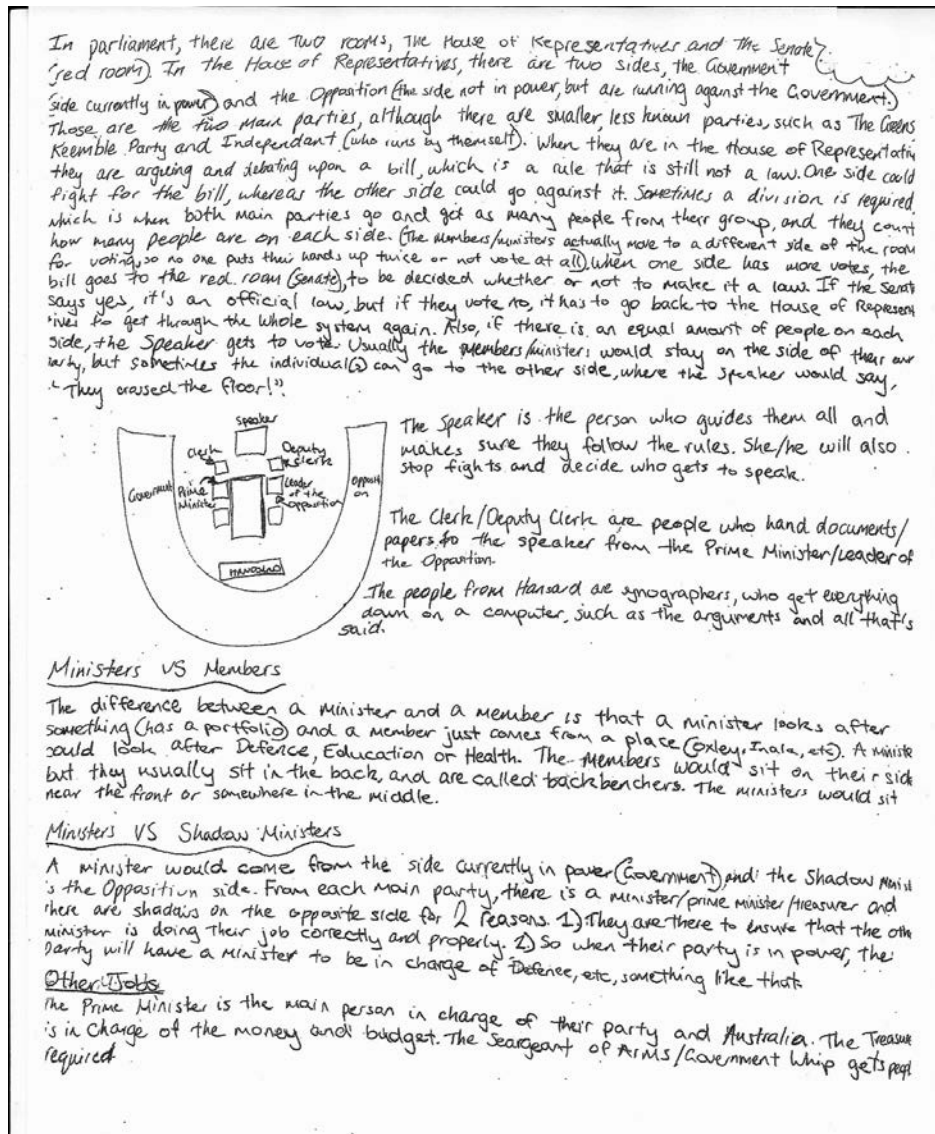 In parliament, there are two rooms, the House of Representatives and the Senate
(red room). In the House of Representatives, there are two sides, the Government
side currently in power) and the Opposition (the side not in power, but are running against the Government.)
Those are the two main parties, although there are smaller, less known parties, such as The Greens
Keemble Party and Independant (who runs by themself). When they are in the House of Representativ
they are arguing and debating upon a bill, which is a rule that is still not a law. One side could
fight for the bill, whereas the other side could go against it. Sometimes a division is required
which is when both main parties go and get as many people from their group, and they count
how many people are on each side. (The members/ministers actually move to a different side of the room
for voting, so no one puts their hands up twice or not vote at all). When one side has more votes, the
bill goes to the red room (Senate), to be decided whether or not to make it a law. If the Senat
says yes, it's an official law, but if they vote no, it has to go back to the House of Represent
ives to get through the whole system again. Also, if there is an equal amount of people on each
side, the Speaker gets to vote. Usually the members/ministers would stay on the side of their own
arty, but sometimes the individual(s) can go to the other side, where the speaker would say,
"They crossed the floor!"
Speaker
Clerk
Deputy
clerk
Government
Prime
Minister
Leader
of the
Opposition
Oppositi
on
HANSARD
The speaker is the person who guides them all and
makes sure they follow the rules. She/he will also
stop fights and decide who gets to speak.
The Clerk/Deputy Clerk are people who hand documents/
papers to the speaker from the Prime Minister/Leader of
the Opposition.
The people from Hansard are synographers, who get everything
down on a computer, such as the arguments and all that's
said.
Ministers VS Members
The difference between a minister and a member is that a minister looks after
something (has a portfolio) and a member just comes from a place (Oxley, Inala, etc). A ministe
could look after Defence, Education or Health. The members would sit on their side
but they usually sit in the back, and are called backbenchers. The ministers would sit
near the front or somewhere in the middle.
Ministers VS Shadow Ministers
A minister would come from the side currently in power (Government) and the Shadow Minist
is the Opposition side. From each main party, there is a minister/prime minister/treasurer and
there are shadows on the opposite side for 2 reasons. 1) They are there to ensure that the oth
minister is doing their job correctly and properly. 2) So when their party is in power, the
party will have a minister to be in charge of Defence, etc, something like that.
Other Jobs
The Prime Minister is the main person in charge of their party and Australia. The Treasure
is in charge of the money and budget. The Seargeant of Arms/Government Whip gets peopl
required